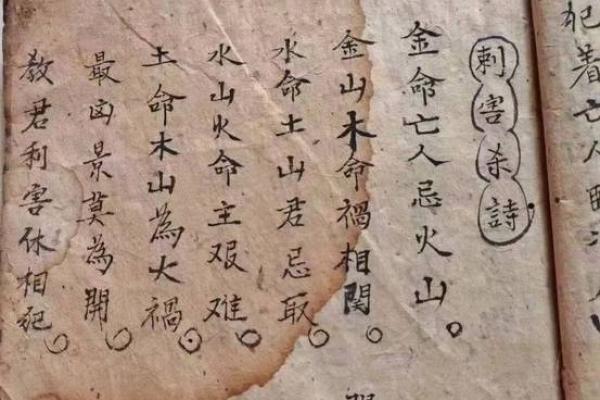 刺害杀詩
金命亡人忌火山。
金山木命禍相関。
水命土山君忌取。
水山火命主艰难。
土命木山為大禍。
最凶景莫為開。
教君利害休相犯。
犯着亡人